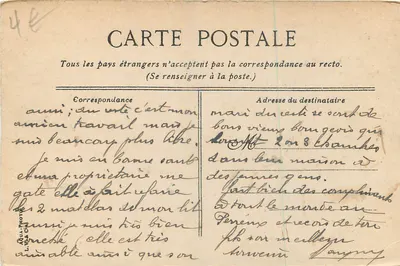 4 €
CARTE POSTALE
Tous les pays étrangers n'acceptent pas la correspondance au recto.
(Se renseigner à la poste.)
Correspondance
Adresse du destinataire
aussi; du reste c'est mon
ancien travail mais je
suis beaucoup plus libre.
Je suis en bonne santé
et ma propriétaire me
gate elle a fait refaire
les 2 matelas de mon lit
aussi je suis très bien
couché; elle est très
aimable ainsi que son
mari du reste ce sont de
bons vieux bourgeois qui
2 ou 3 chambres
dans leur maison à
des jeunes gens.
bien des compliments
à tout le monde au
Perreux et reçois de ton
fils son meilleur
souvenir